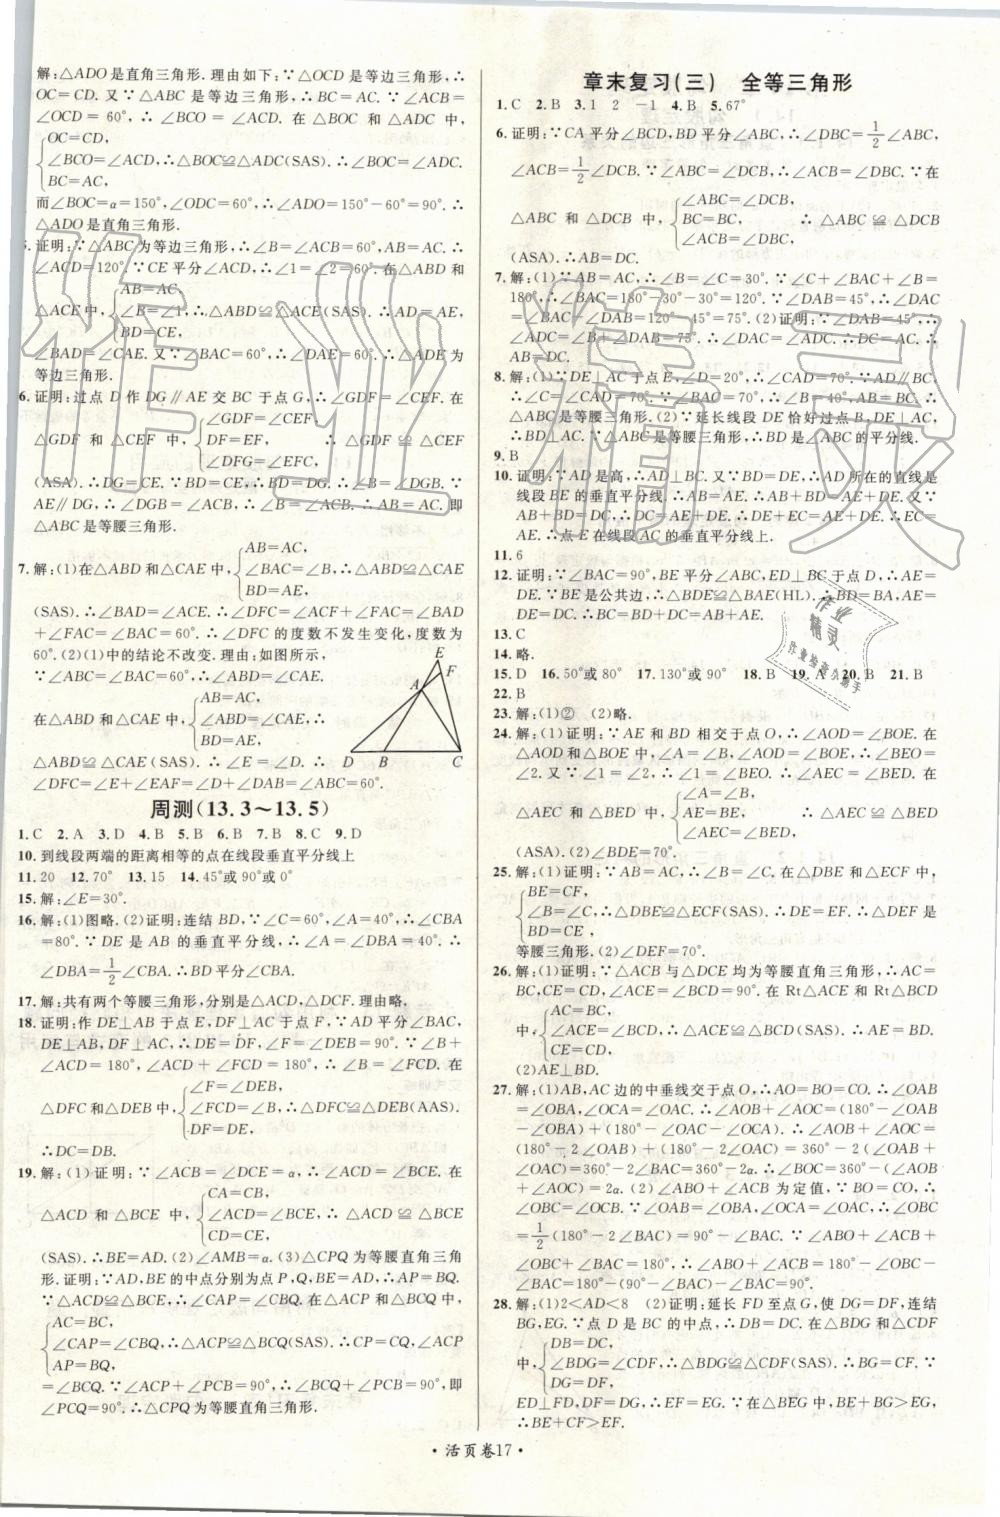 解:△ADO是直角三角形.理由如下:∵△OCD是等边三角形,∴
OC=CD.又∵△ABC是等边三角形,∴BC=AC.∵∠ACB=
∠OCD=60°,∴∠BCO=∠ACD.在△BOC和△ADC中,
BO=CD,
∠BCO=∠ACD,∴△BOC≌△ADC(SAS).∴∠BOC=∠ADC.
BC=AC,
而∠BOC=α=150°,∠ODC=60°,∴∠ADO=150°-60°=90°.∴
△ADO是直角三角形.
证明:∵△ABC为等边三角形,∴∠B=∠ACB=60°,AB=AC.∴
∠ACD=120°.∵CE平分∠ACD,∴∠1=∠2=60°.在△ABD和
AB=AC,
△ACE中,∠B=∠1,∴△ABD≌△ACE(SAS).∴AD=AE,
BD=CE,
∠BAD=∠CAE.又∵∠BAC=60°,∴∠DAE=60°.∴△ADE为
等边三角形.
6.证明:过点D作DG∥AE交BC于点G,∴∠GDF=∠CEF.在
∠GDF=∠CEF,
△GDF和△CEF中,DF=EF,∴△GDF≌△CEF
∠DFG=∠EFC,
(ASA).∴DG=CE.∵BD=CE,∴BD=DG.∴∠B=∠DGB.∵
AE∥DG,∴∠DGB=∠ACB,∴∠B=∠ACB.∴AB=AC.即
△ABC是等腰三角形.
AB=AC,
7.解:(1)在△ABD和△CAE中,∠BAC=∠B,∴△ABD≌△CAE
BD=AE,
(SAS).∴∠BAD=∠ACE.∴∠DFC=∠ACF+∠FAC=∠BAD
+∠FAC=∠BAC=60°.∴∠DFC的度数不发生变化,度数为
60°.(2)(1)中的结论不改变.理由:如图所示,
∵∠ABC=∠BAC=60°,∴∠ABD=∠CAE.
AB=AC,
在△ABD和△CAE中,∠ABD=∠CAE,∴
BD=AE,
△ABD≌△CAE(SAS).∴∠E=∠D.∴
∠DFC=∠E+∠EAF=∠D+∠DAB=∠ABC=60°.
E
F
A
D B C
周测(13.3～13.5)
1.C 2.A 3.D 4.B 5.B 6.B 7.B 8.C 9.D
10.到线段两端的距离相等的点在线段垂直平分线上
11.20 12.70° 13.15 14.45°或90°或0°
15.解:∠E=30°.
16.解:(1)图略.(2)证明:连结BD,∵∠C=60°,∠A=40°,∴∠CBA
=80°.∵DE是AB的垂直平分线,∴∠A=∠DBA=40°.∴
∠DBA=1/2∠CBA.∴BD平分∠CBA.
17.解:共有两个等腰三角形,分别是△ACD,△DCF.理由略.
18.证明:作DE⊥AB于点E,DF⊥AC于点F,∵AD平分∠BAC,
DE⊥AB,DF⊥AC,∴DE=DF,∠F=∠DEB=90°.∵∠B+
∠ACD=180°,∠ACD+∠FCD=180°,∴∠B=∠FCD.在
∠F=∠DEB,
△DFC和△DEB中,∠FCD=∠B,∴△DFC≌△DEB(AAS).
DF=DE,
∴DC=DB.
19.解:(1)证明:∵∠ACB=∠DCE=α,∴∠ACD=∠BCE.在
CA=CB,
△ACD和△BCE中,∠ACD=∠BCE,∴△ACD≌△BCE
CD=CE,
(SAS).∴BE=AD.(2)∠AMB=α.(3)△CPQ为等腰直角三角
形.证明:∵AD,BE的中点分别为点P,Q,BE=AD,∴AP=BQ.
∵△ACD≌△BCE,∴∠CAP=∠CBQ.在△ACP和△BCQ中,
AC=BC,
∠CAP=∠CBQ,∴△ACP≌△BCQ(SAS).∴CP=CQ,∠ACP
AP=BQ,
=∠BCQ.∵∠ACP+∠PCB=90°,∴∠BCQ+∠PCB=90°,即
∠PCQ=90°.∴△CPQ为等腰直角三角形.
章末复习(三) 全等三角形
1.C 2.B 3.1 2 -1 4.B 5.67°
6.证明:∵CA平分∠BCD,BD平分∠ABC,∴∠DBC=1/2∠ABC,
∠ACB=1/2∠DCB.∵∠ABC=∠DCB,∴∠ACB=∠DBC.∵在
∠ABC=∠DCB,
△ABC和△DCB中,BC=BC,∴△ABC≌△DCB
∠ACB=∠DBC,
(ASA).∴AB=DC.
7.解:(1)∵AB=AC,∴∠B=∠C=30°.∵∠C+∠BAC+∠B=
180°,∴∠BAC=180°-30°-30°=120°.∵∠DAB=45°,∴∠DAC
=∠BAC-∠DAB=120°-45°=75°.(2)证明:∵∠DAB=45°,∴
∠ADC=∠B+∠DAB=75°.∴∠DAC=∠ADC.∴DC=AC.∴
DC=AB.
8.解:(1)∵DE⊥AC于点E,∠D=20°,∴∠CAD=70°.∵AD∥BC,
∴∠C=∠CAD=70°.∵∠BAC=70°,∴∠B=40°,AB=BC.∴
△ABC是等腰三角形.(2)∵延长线段DE恰好过点B,DE⊥AC,
∴BD⊥AC.∵△ABC是等腰三角形,∴BD是∠ABC的平分线.
9.B
10.证明:∵AD是高,∴AD⊥BC.又∵BD=DE,∴AD所在的直线是
线段BE的垂直平分线.∴AB=AE.∴AB+BD=AE+DE.又∵
AB+BD=DC,∴DC=AE+DE.∴DE+EC=AE+DE.∴EC=
AE.∴点E在线段AC的垂直平分线上.
11.6
12.证明:∵∠BAC=90°,BE平分∠ABC,ED⊥BC于点D,∴AE=
DE.∵BE是公共边,∴△BDE≌△BAE(HL).∴BD=BA,AE=
DE=DC.∴BC=BD+DC=AB+AE.
13.C
14.略.
15.D 16.50°或80° 17.130°或90° 18.B 19.A 20.B 21.B
22.B
23.解:(1)② (2)略.
24.解:(1)证明:∵AE和BD相交于点O,∴∠AOD=∠BOE.在
△AOD和△BOE中,∠A=∠B,∠AOD=∠BOE,∴∠BEO=
∠2.又∵∠1=∠2,∴∠1=∠BEO.∴∠AEC=∠BED.在
∠A=∠B,
△AEC和△BED中,AE=BE,∴△AEC≌△BED
∠AEC=∠BED,
(ASA).(2)∠BDE=69°.
25.解:(1)证明:∵AB=AC,∴∠B=∠C.在△DBE和△ECF中,
BE=CF,
∠B=∠C,∴△DBE≌△ECF(SAS).∴DE=EF.∴△DEF是
BD=CE,
等腰三角形.(2)∠DEF=70°.
26.解:(1)证明:∵△ACB与△DCE均为等腰直角三角形,∴AC=
BC,CE=CD,∠ACE=∠BCD=90°.在Rt△ACE和Rt△BCD
AC=BC,
中,∠ACE=∠BCD,∴△ACE≌△BCD(SAS).∴AE=BD.
CE=CD,
(2)AE⊥BD.
27.解:(1)AB,AC边的中垂线交于点O,∴AO=BO=CO.∴∠OAB
=∠OBA,∠OCA=∠OAC.∴∠AOB+∠AOC=(180°-∠OAB
-∠OBA)+(180°-∠OAC-∠OCA).∴∠AOB+∠AOC=
(180°-2∠OAB)+(180°-2∠OAC)=360°-2(∠OAB+
∠OAC)=360°-2∠BAC=360°-2α.∴∠BOC=360°-(∠AOB
+∠AOC)=2α.(2)∠ABO+∠ACB为定值,∵BO=CO,∴
∠OBC=∠OCB.∵∠OAB=∠OBA,∠OCA=∠OAC,∴∠OBC
=1/2(180°-2∠BAC)=90°-∠BAC.∵∠ABO+∠ACB+
∠OBC+∠BAC=180°,∴∠ABO+∠ACB=180°-∠OBC-
∠BAC=180°-(90°-∠BAC)-∠BAC=90°.
28.解:(1)2<AD<8 (2)证明:延长FD至点G,使DG=DF,连结
BG,EG.∵点D是BC的中点,∴DB=DC.在△BDG和△CDF
DB=DC,
中,∠BDG=∠CDF,∴△BDG≌△CDF(SAS).∴BG=CF.∵
DG=DF,
ED⊥FD,DF=DG,∴EF=EG.在△BEG中,BE+BG>EG,
∴BE+CF>EF.
·活页卷17·
作业精灵
作业
精灵